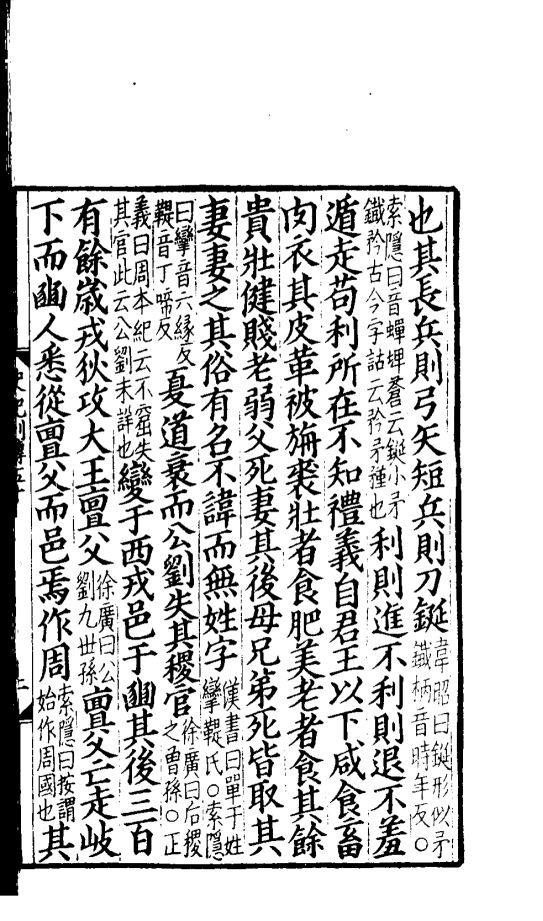 也其長兵則弓矢短兵則刀鋋韋昭曰鋋形似矛鐵柄音時年反○
索隱曰音蟬埤蒼云鋋小矛鐵矜古今字詁云矜矛種也利則進不利則退不羞
遁走苟利所在不知禮義自君王以下咸食畜
肉衣其皮革被旃裘壯者食肥美老者食其餘
貴壯健賤老弱父死妻其後母兄弟死皆取其
妻妻之其俗有名不諱而無姓字漢書曰單于姓攣鞮氏○索隱
曰攣音六緣反鞮音丁啼反夏道衰而公劉失其稷官徐廣曰后稷之曾孫○正
義曰周本紀云不窋失其官此云公劉未詳也變于西戎邑于豳其後三百
有餘歲戎狄攻大王亶父徐廣曰公劉九世孫亶父亡走岐
下而豳人悉從亶父而邑焉作周索隱曰按謂始作周國也其